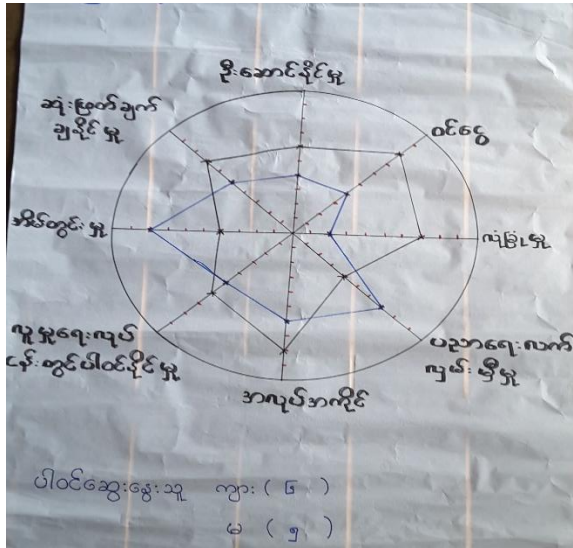 ဦးဆောင်နိုင်မှု
ဝင်ငွေ
လုံခြုံမှု
ပညာရေးလက်
လှမ်းမှီမှု
အလုပ်အကိုင်
လူမှုရေးလုပ်
ငန်းတွင်ပါဝင်နိုင်မှု
အိမ်တွင်းမှု
ဆုံးဖြတ်ချက်
ချနိုင်မှု
ပါဝင်ဆွေးနွေးသူ ကျား ( ၆ )
မ ( ၅ )